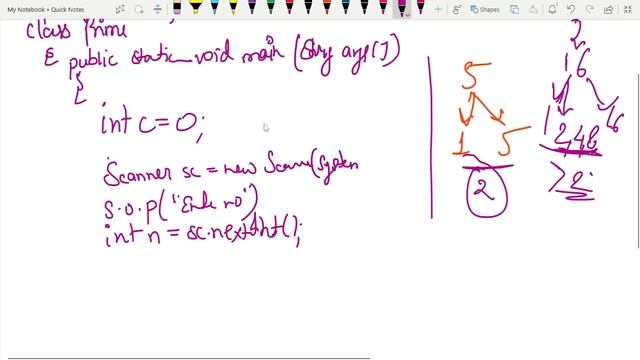 My Notebook » Quick Notes
Shapes
class Prime
{ public static void main (String args[])
{
int c=0;
Scanner sc = new Scanner(System
S.o.p("Enter no")
int n = sc.nextInt();
5
1 5
2
2
16
1 2,4,8 16
>2